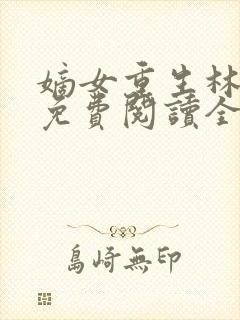 嫡女重生林
免費閱讀全
島崎無印